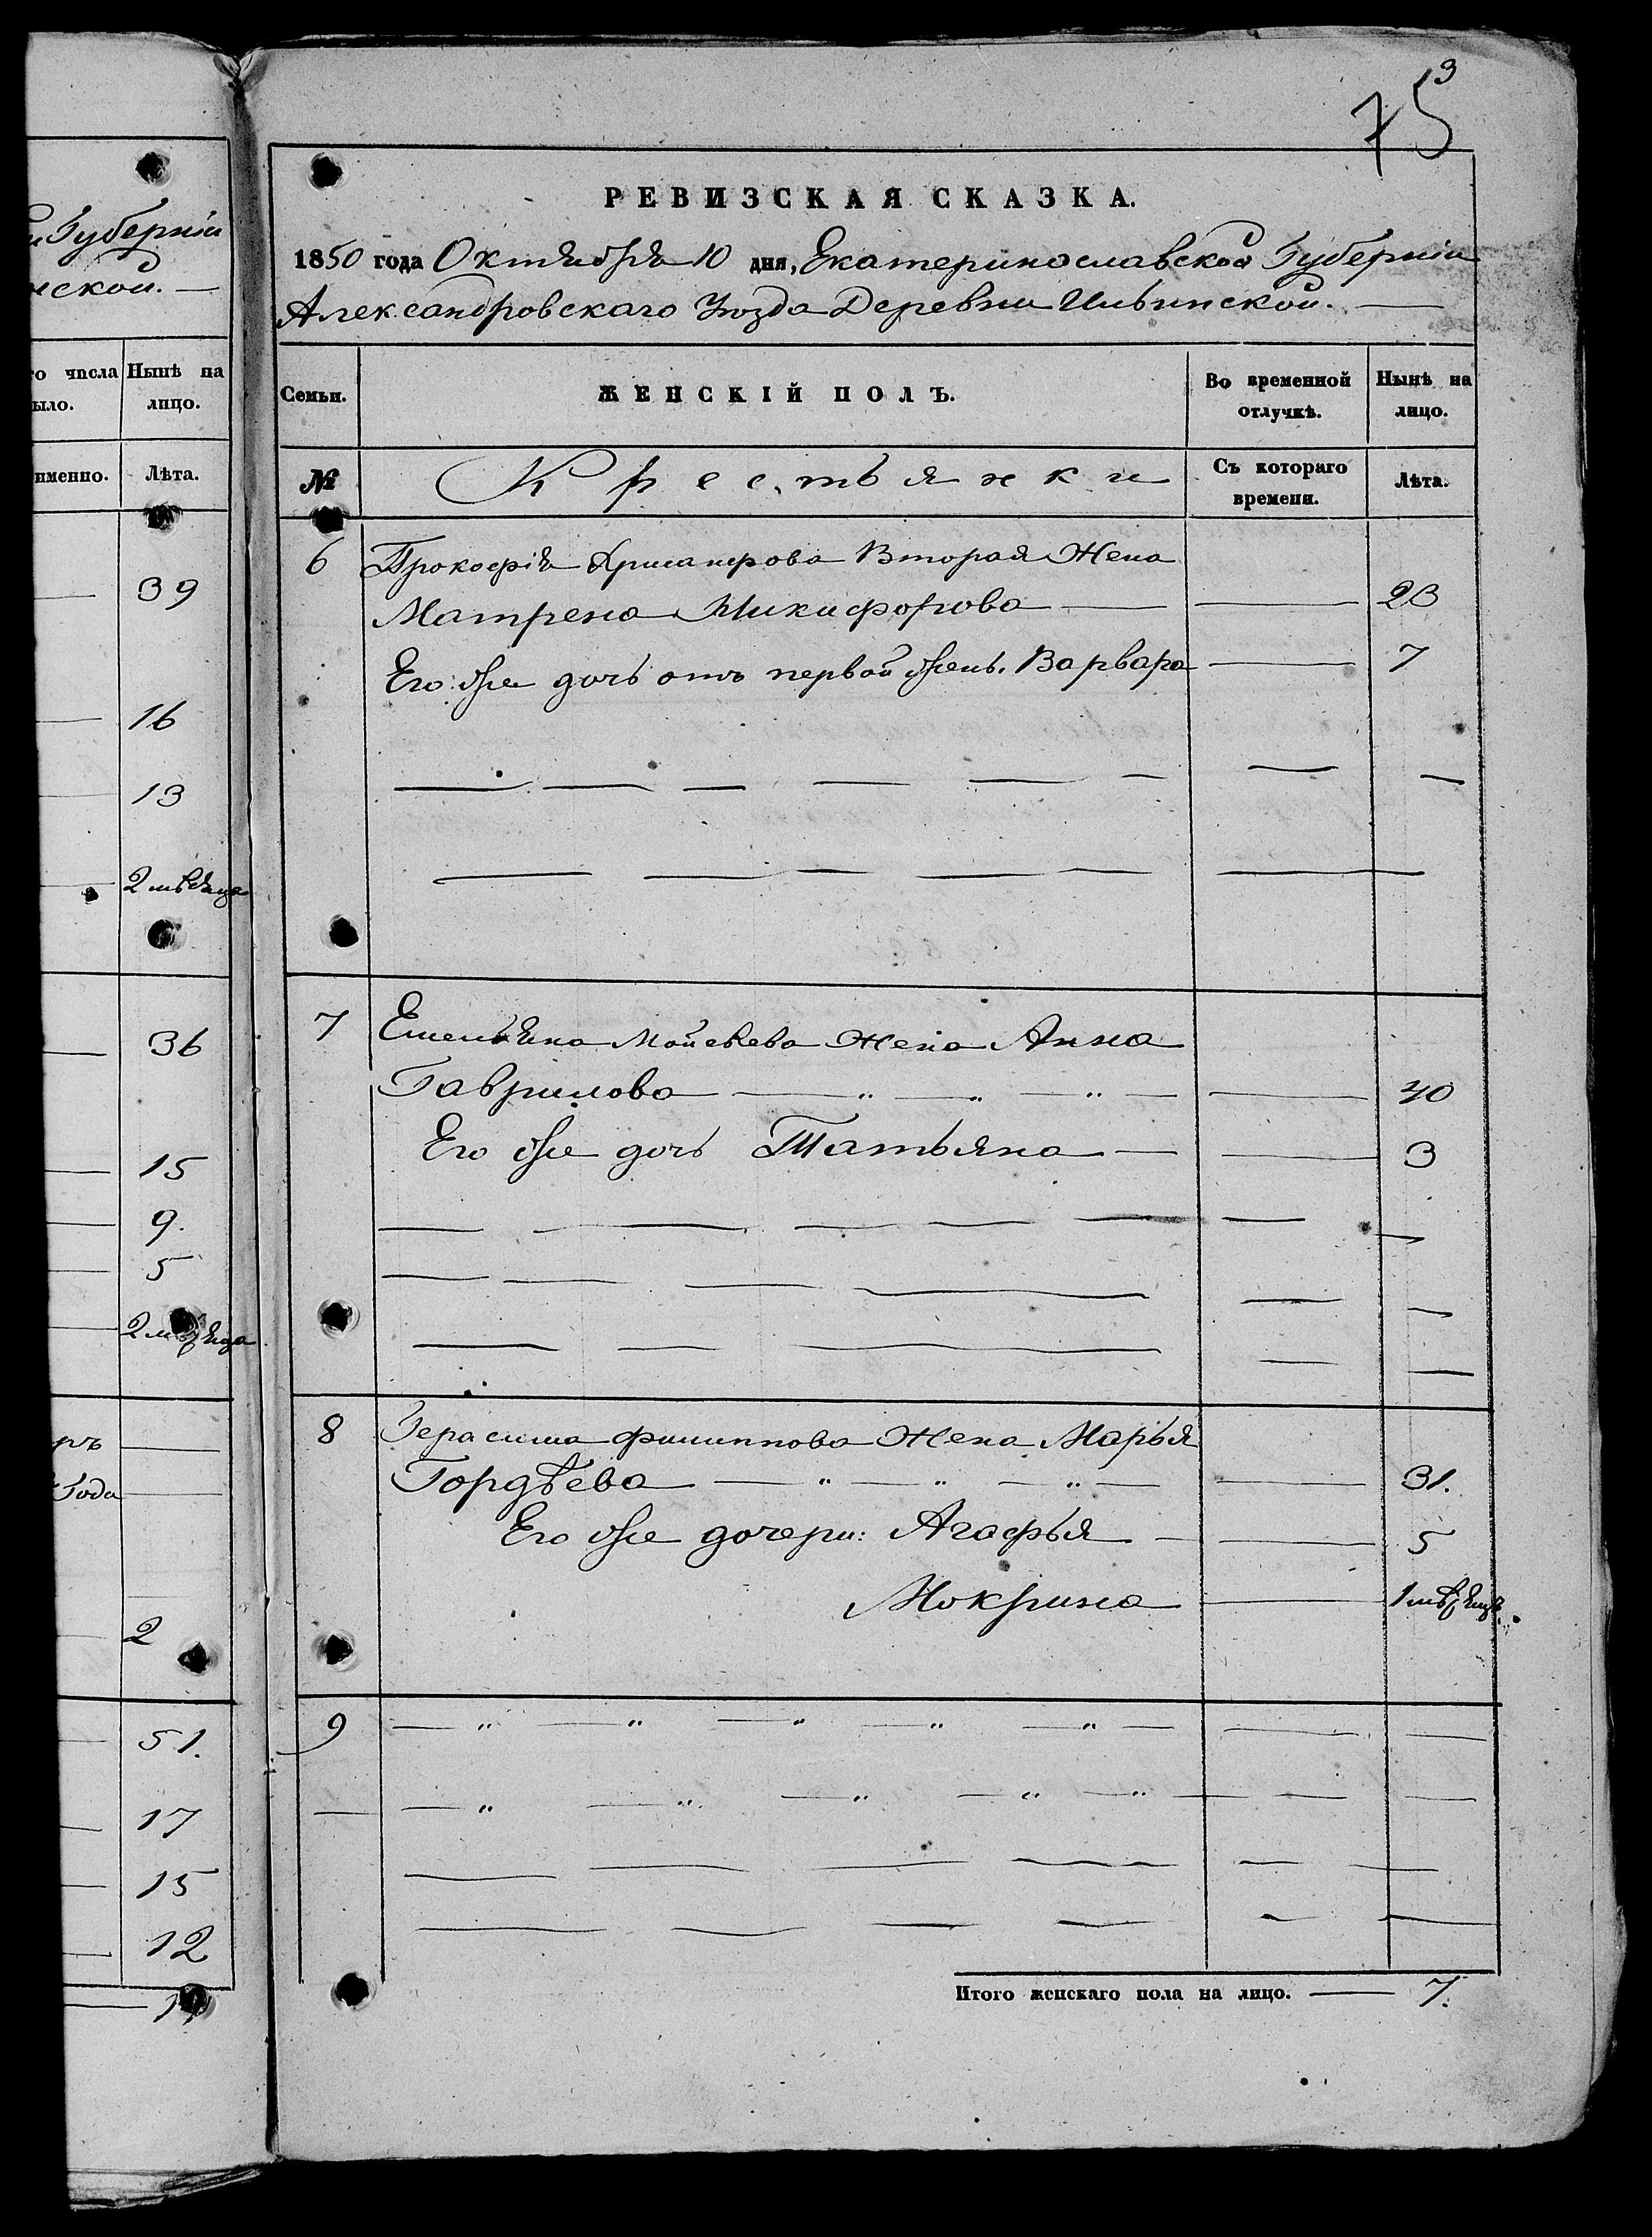 Губерніи
нской. —
го числа
было.
Нынѣ на
лицо.
именно.
Лѣта.
39
16
13
2 мѣсяца
36
15
9.
5
2 мѣсяца
Года
2
51.
17
15
12
3
75
РЕВИЗСКАЯ СКАЗКА.
1850 года Октября 10 дня, Екатеринославской Губерніи
Александровскаго Уѣзда Деревни Ильинской. —
Семьи.
ЖЕНСКІЙ ПОЛЪ.
Во временной
отлучкѣ.
Нынѣ на
лицо.
№
Крестьянки
Съ котораго
времени.
Лѣта.
6 Прокофія Хрисанфова Вторая Жена
Матрена Никифорова — — 23
Его же дочь отъ первой жены. Варвара — 7
7 Емельяна Мойсѣева Жена Анна
Гаврилова — „ — „ — „ — — 40
Его же дочь Татьяна — — 3
8 Герасима Филиппова Жена Марья
Гордѣева — „ — „ — „ — — 31.
Его же дочери: Агафья — — 5
Мокрина — 1 мѣсяцъ.
9 — „ — „ — „ — „ — „ —
Итого женскаго пола на лицо. — 7.